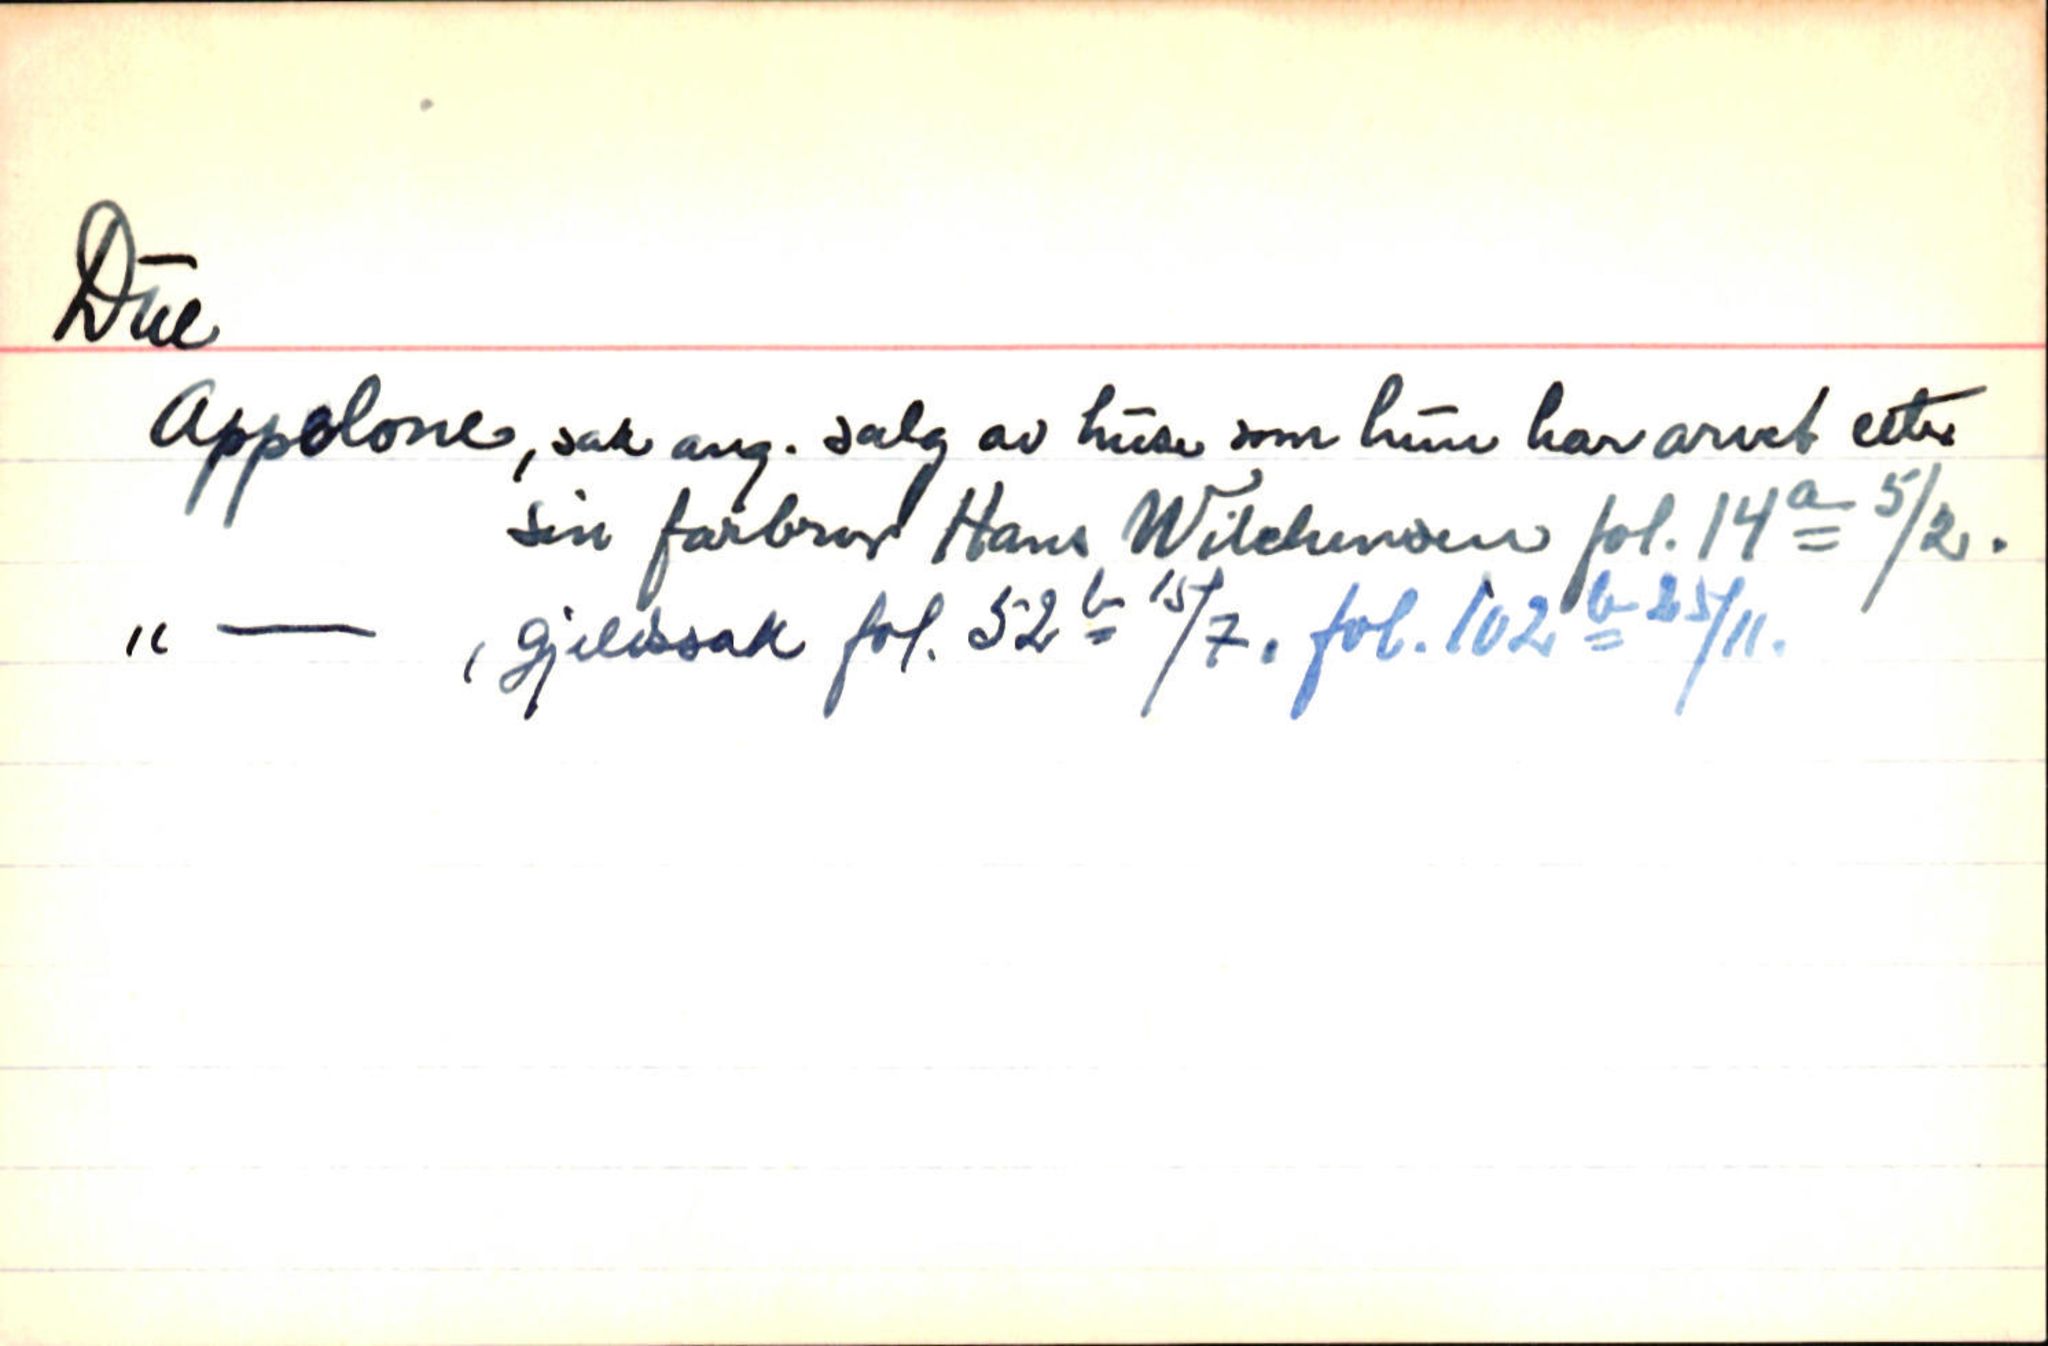 Due
Appolone, sak ang. salg av huse som hun har arvet etter
sin farbror Hans Wilchensen fol. 14a 5/2.
" — , gjeldssak fol. 52b 15/7. fol. 102b 25/11.